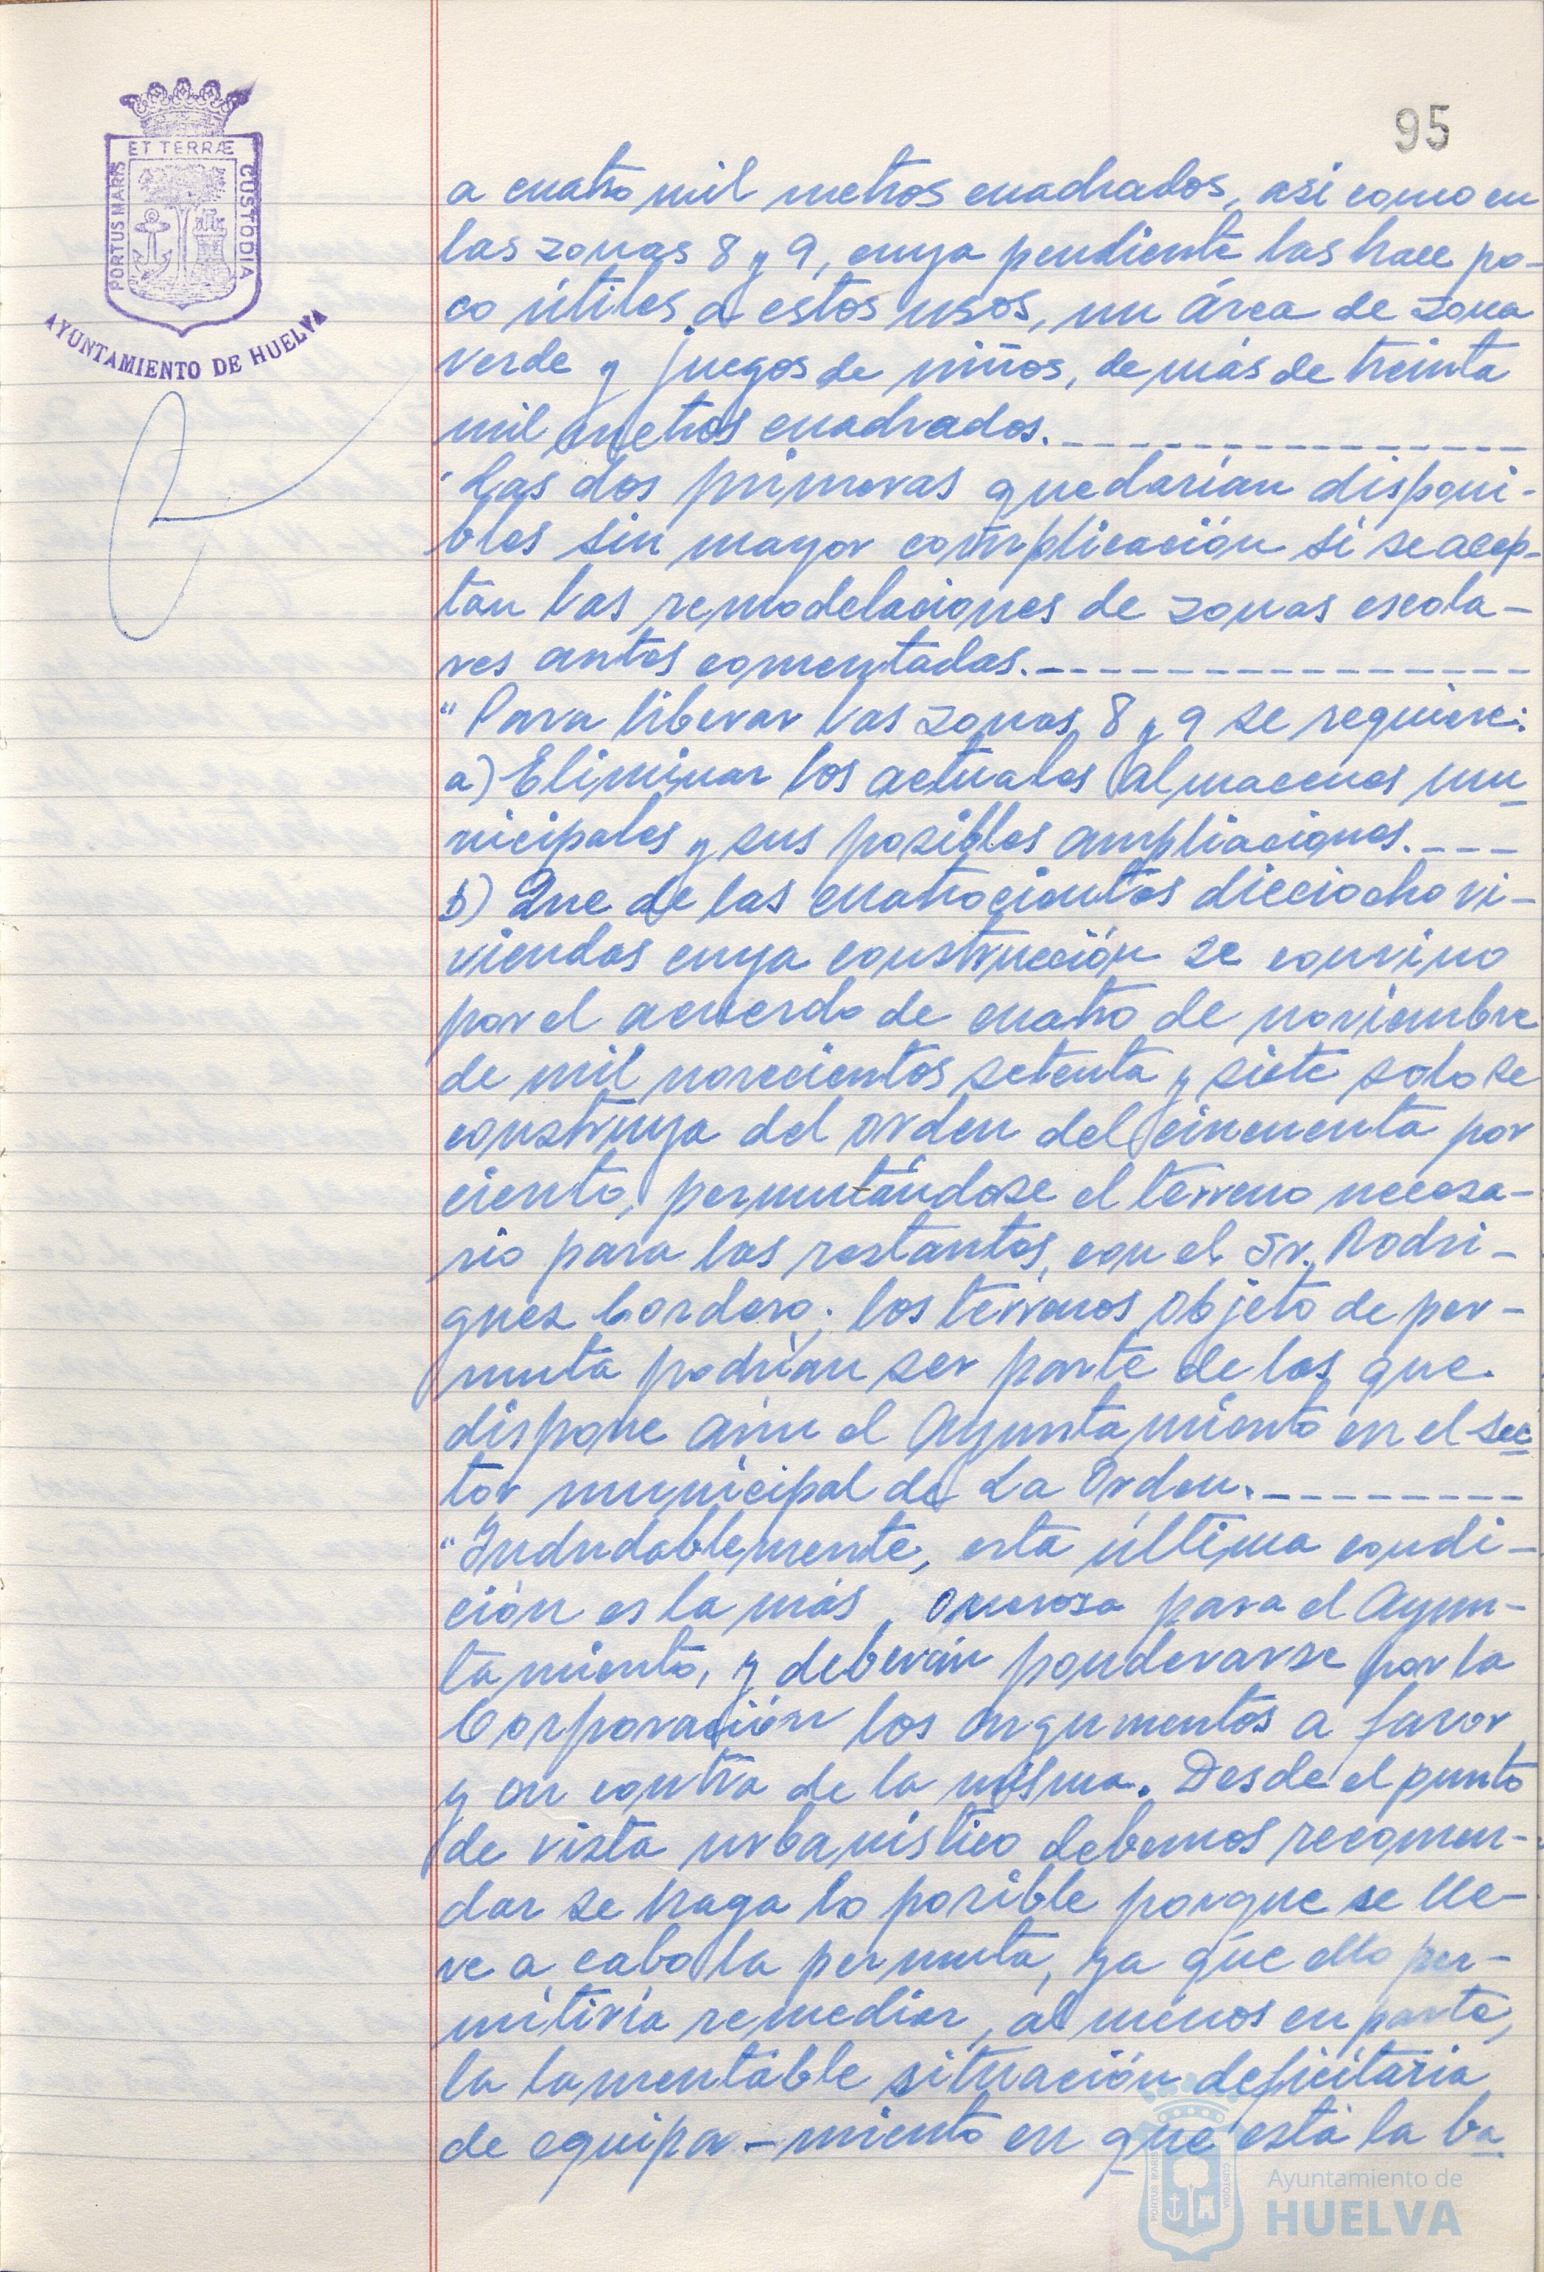 95
ET TERRÆ
PORTUS MARIS
CUSTODIA
AYUNTAMIENTO DE HUELVA
a cuatro mil metros cuadrados, asi como en
las zonas 8 y 9, cuya pendiente las hace po-
co útiles a estos usos, un área de zona
verde y juegos de niños, de más de treinta
mil metros cuadrados.
"Las dos primeras quedarían disponi-
bles sin mayor complicación si se acep-
tan las remodelaciones de zonas escola-
res antes comentadas.
"Para liberar las zonas 8 y 9 se requiere:
a) Eliminar los actuales almacenes mu
nicipales y sus posibles ampliaciones.
b) Que de las cuatrocientas dieciocho vi-
viendas cuya construcción se convino
por el acuerdo de cuatro de noviembre
de mil novecientos setenta y siete solo se
construya del orden del cincuenta por
ciento, permutándose el terreno necesa-
rio para las restantes, con el Sr. Rodri-
guez Cordero; los terrenos objeto de per-
muta podrían ser parte de los que
dispone aún el Ayuntamiento en el sec
tor municipal de La Orden.
"Indudablemente, esta última condi-
ción es la más onerosa para el Ayun-
tamiento, y deberán ponderarse por la
Corporación los argumentos a favor
y en contra de la misma. Desde el punto
de vista urbanístico debemos recomen-
dar se haga lo posible porque se lle-
ve a cabo la permuta, ya que ello per-
mitiría remediar, al menos en parte,
la lamentable situación deficitaria
de equipa-miento en que está la ba
Ayuntamiento de
HUELVA